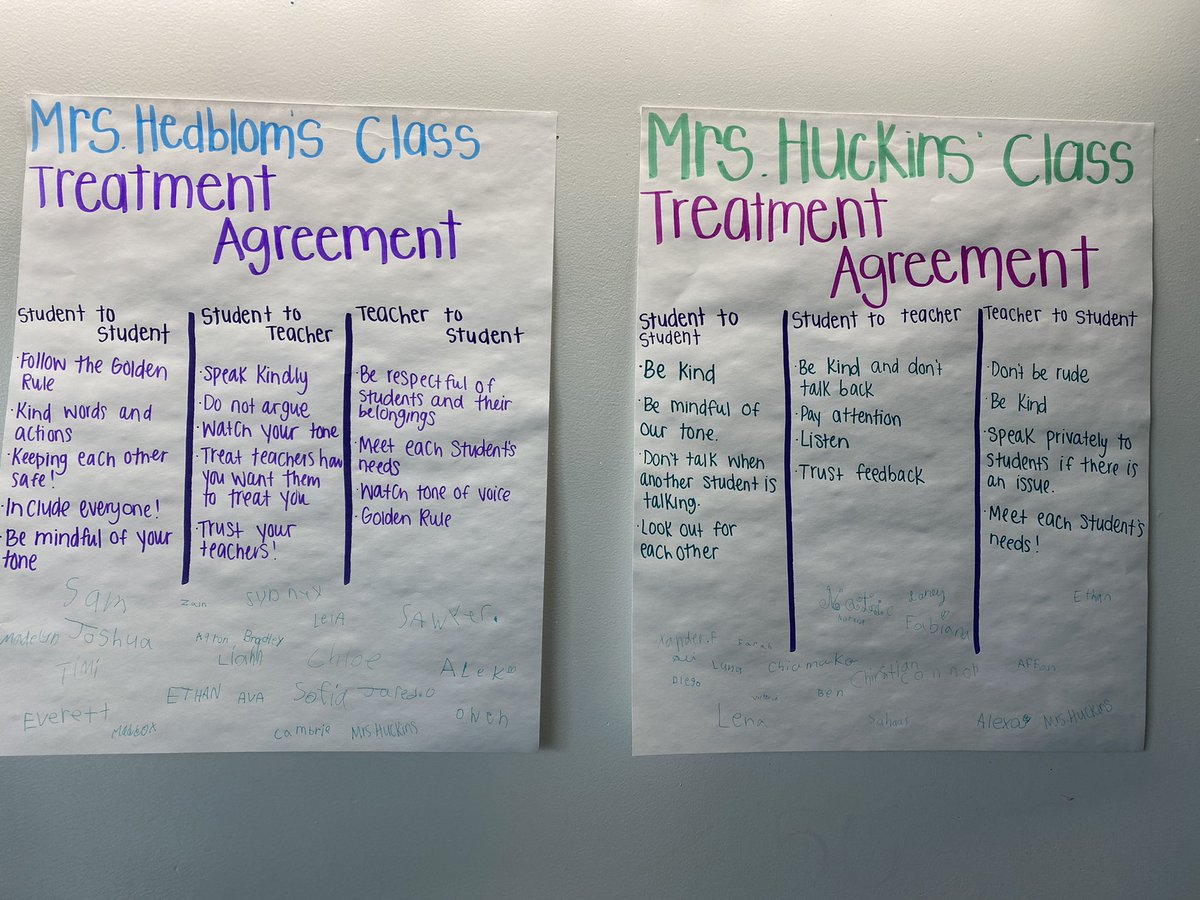 Mrs. Hedblom's Class
Treatment
Agreement
Student to
Student
·Follow the Golden
Rule
·Kind words and
actions
·Keeping each other
safe!
·Include everyone!
·Be mindful of your
tone
Student to
Teacher
·Speak Kindly
·Do not argue
·Watch your tone
·Treat teachers how
you want them
to treat you
·Trust your
teachers!
Teacher to
Student
·Be respectful of
students and their
belongings
·Meet each student's
needs
·Watch tone of voice
·Golden Rule
Sam
Zain
Sydney
Leia
Sawyer.
Madelyn
Joshua
Aaron
Bradley
Liahh
Chloe
Timi
Alek
ETHAN
AVA
Sofia
Jaredio
Everett
Maddox
Cambrie
Mrs Huckins
Owen
Mrs. Huckins' Class
Treatment
Agreement
Student to
Student
·Be Kind
·Be mindful of
our tone.
·Don't talk when
another student is
talking.
·Look out for
each other
Student to teacher
·Be Kind and don't
talk back
·Pay attention
·Listen
·Trust feedback
Teacher to Student
·Don't be rude
·Be Kind
·Speak privately to
students if there is
an issue.
·Meet each student's
needs!
Natalie
Laney
Fabiana
Ethan
Xander.F
Farah
Ali
Luna
Chiamaka
Christian
Connor
Affan
Diego
Ben
Lena
Sahar
Alexa
Mrs Huckins